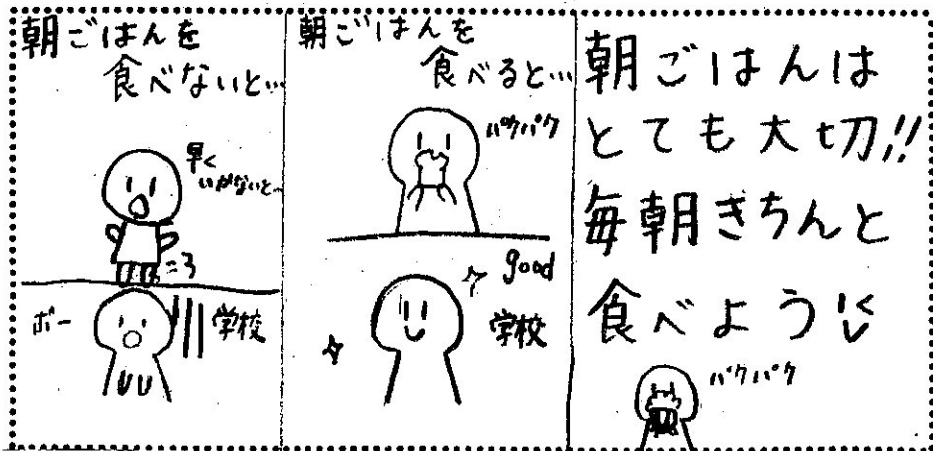 朝ごはんを
食べないと…
早く
いかないと…
ボー
学校
朝ごはんを
食べると…
パクパク
good
学校
朝ごはんは
とても大切!!
毎朝きちんと
食べよう
パクパク